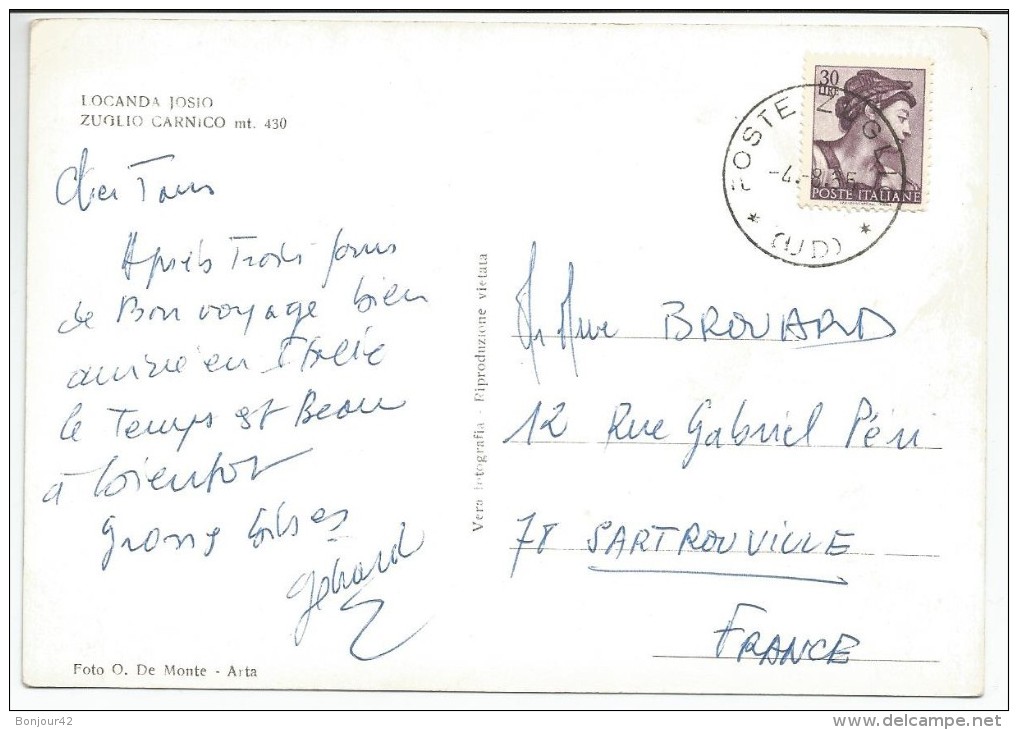 LOCANDA JOSIO
ZUGLIO CARNICO mt. 430
Cher Tous
Après Trois jours
de Bon voyage bien
arrivé en Italie
le Temps est Beau
à bientot
grosses bises
Gérard
Foto O. De Monte - Arta
Vera fotografia - Riproduzione vietata
30
LIRE
POSTE ITALIANE
POSTE ZUGLIO
(UD)
M. Mme BROUARD
12 Rue Gabriel Péri
78 SARTROUVILLE
FRANCE
Bonjour42
www.delcampe.net